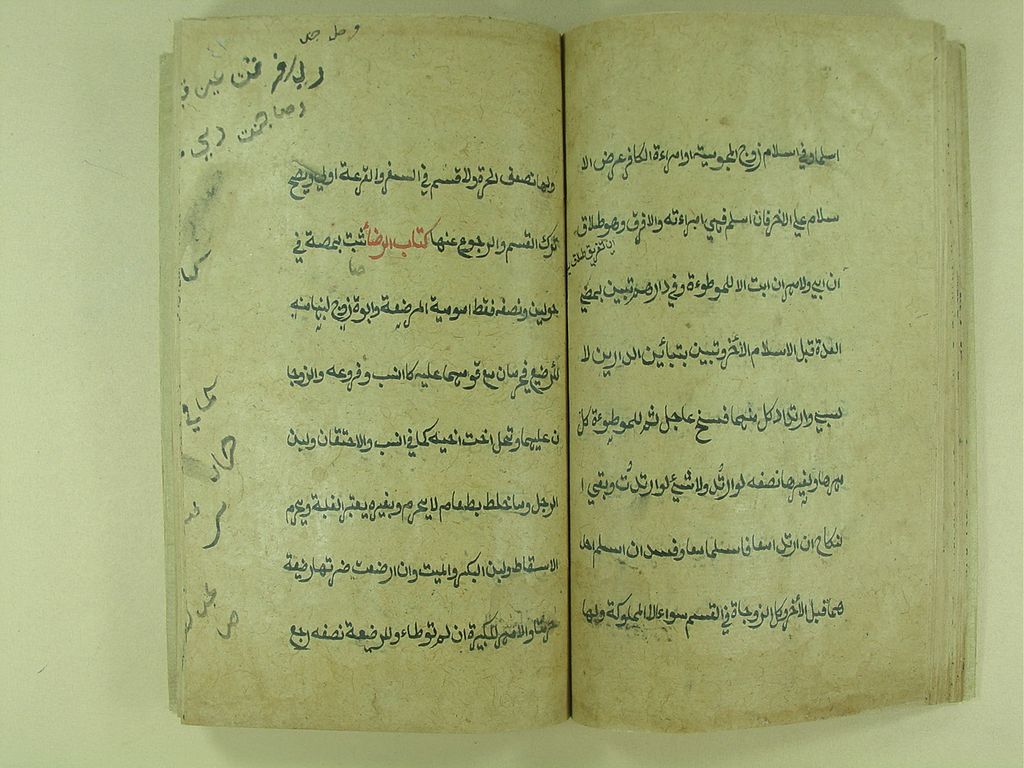 اسلما وفي اسلام زوج المجوسية او امراءة الكافر عرض الا
سلام علي الاخر فان اسلم فهي امراءته والا فرق وهو طلاق
ان ابي ولا مهر ان ابت الا للموطوءة وفي دارهم تبين بمضي
العدة قبل الاسلام الأخر وتبين بتبائين الدارين لا
لسبي وارتداد كل منهما فسخ عاجل ثم للموطوءة كل
مهرها ولغيرها نصفه لو ارتد ولا شئ لو ارتدت وبقي ا
لنكاح ان ارتدا معا فاسلما معا وفسد ان اسلم احد
هما قبل الأخر وكل الزوجاة في القسم سواء الا المملوكة ولها
ولها نصف الحرة ولا قسم في السفر والقرعة اولي ويصح
ترك القسم والرجوع عنها كتاب الرضاع ثبت بمصة في
حولين ونصف فقط امومية المرضعة وابوة زوج لبنها منه
للرضيع فيحرمان مع قومهما عليه كالنسب وفروعه والزوجا
ن عليهما وتحل اخت اخيه كما في النسب والاحتقان ولبن
الرجل وما خلط بطعام لا يحرم وبغيره يعتبر لغبة ويحرم
الاسقاط ولبن البكر والميت وان ارضعت ضرتها رضيعة
حرمتا ولا مهر للكبيرة ان لم توطاء وللرضعة نصفه رجع